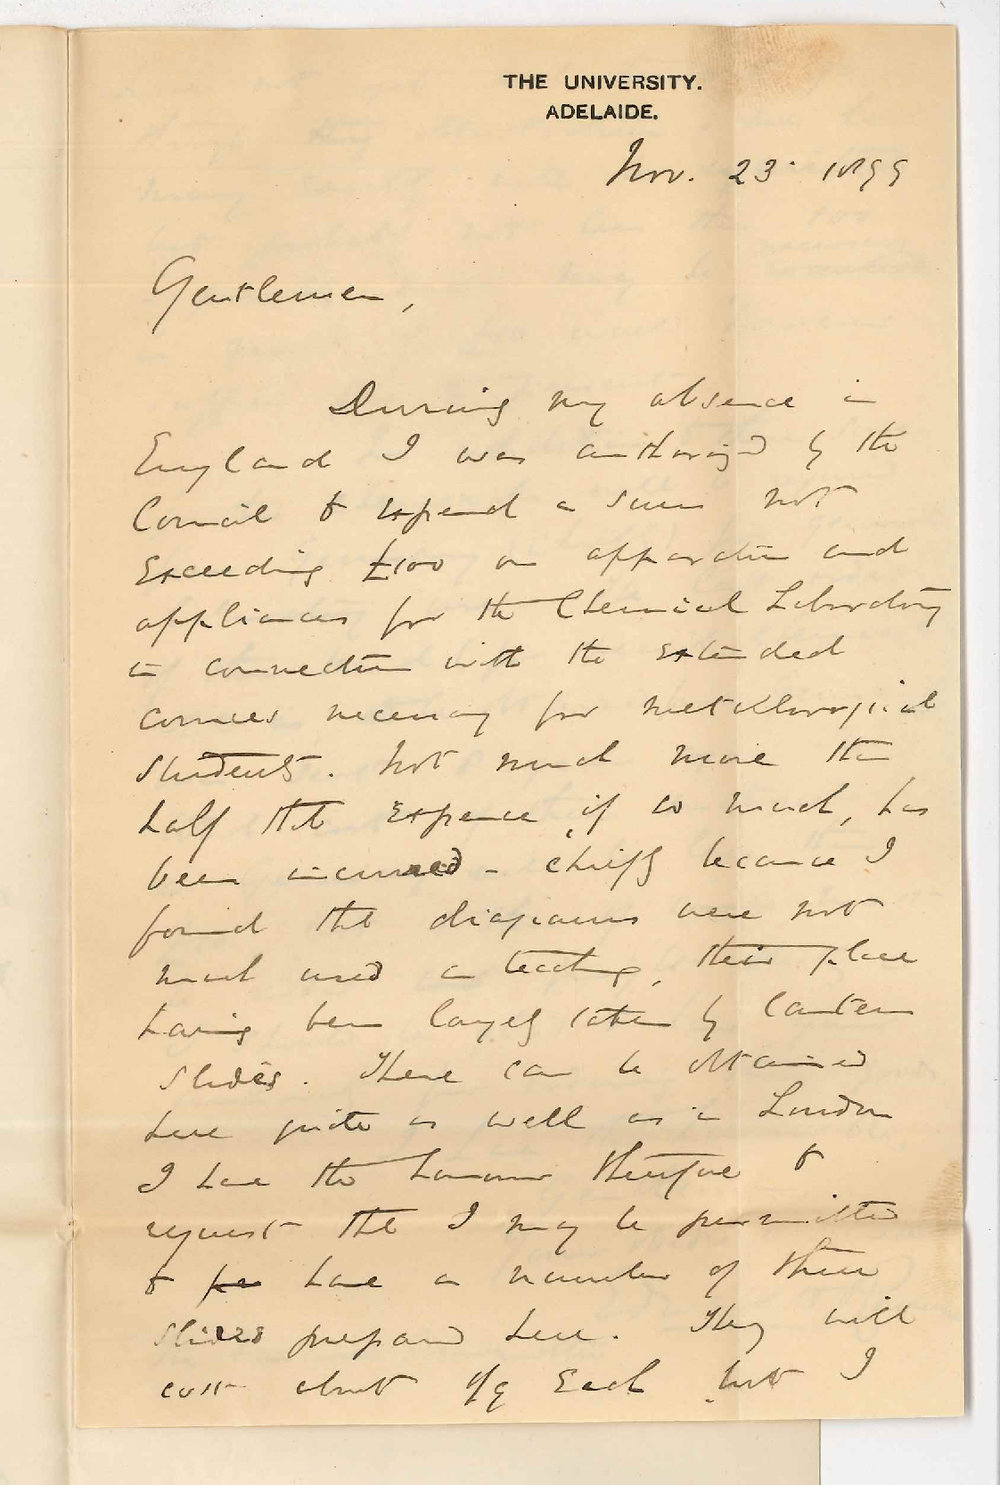 THE UNIVERSITY.
ADELAIDE.
Nov. 23. 1899
Gentlemen,
During my absence in
England I was authorized by the
Council to expend a sum not
exceeding £100 on apparatus and
appliances for the Chemical Laboratory
in connection with the extended
courses necessary for metallurgical
students. Not much more than
half that expense, if so much, has
been incurred - chiefly because I
found that diagrams were not
much used in teaching, their place
having been largely taken by lantern
slides. These can be obtained
here quite as well as in London
I have the honour therefore to
request that I may be permitted
to have a number of these
slides prepared here. They will
cost about each but I